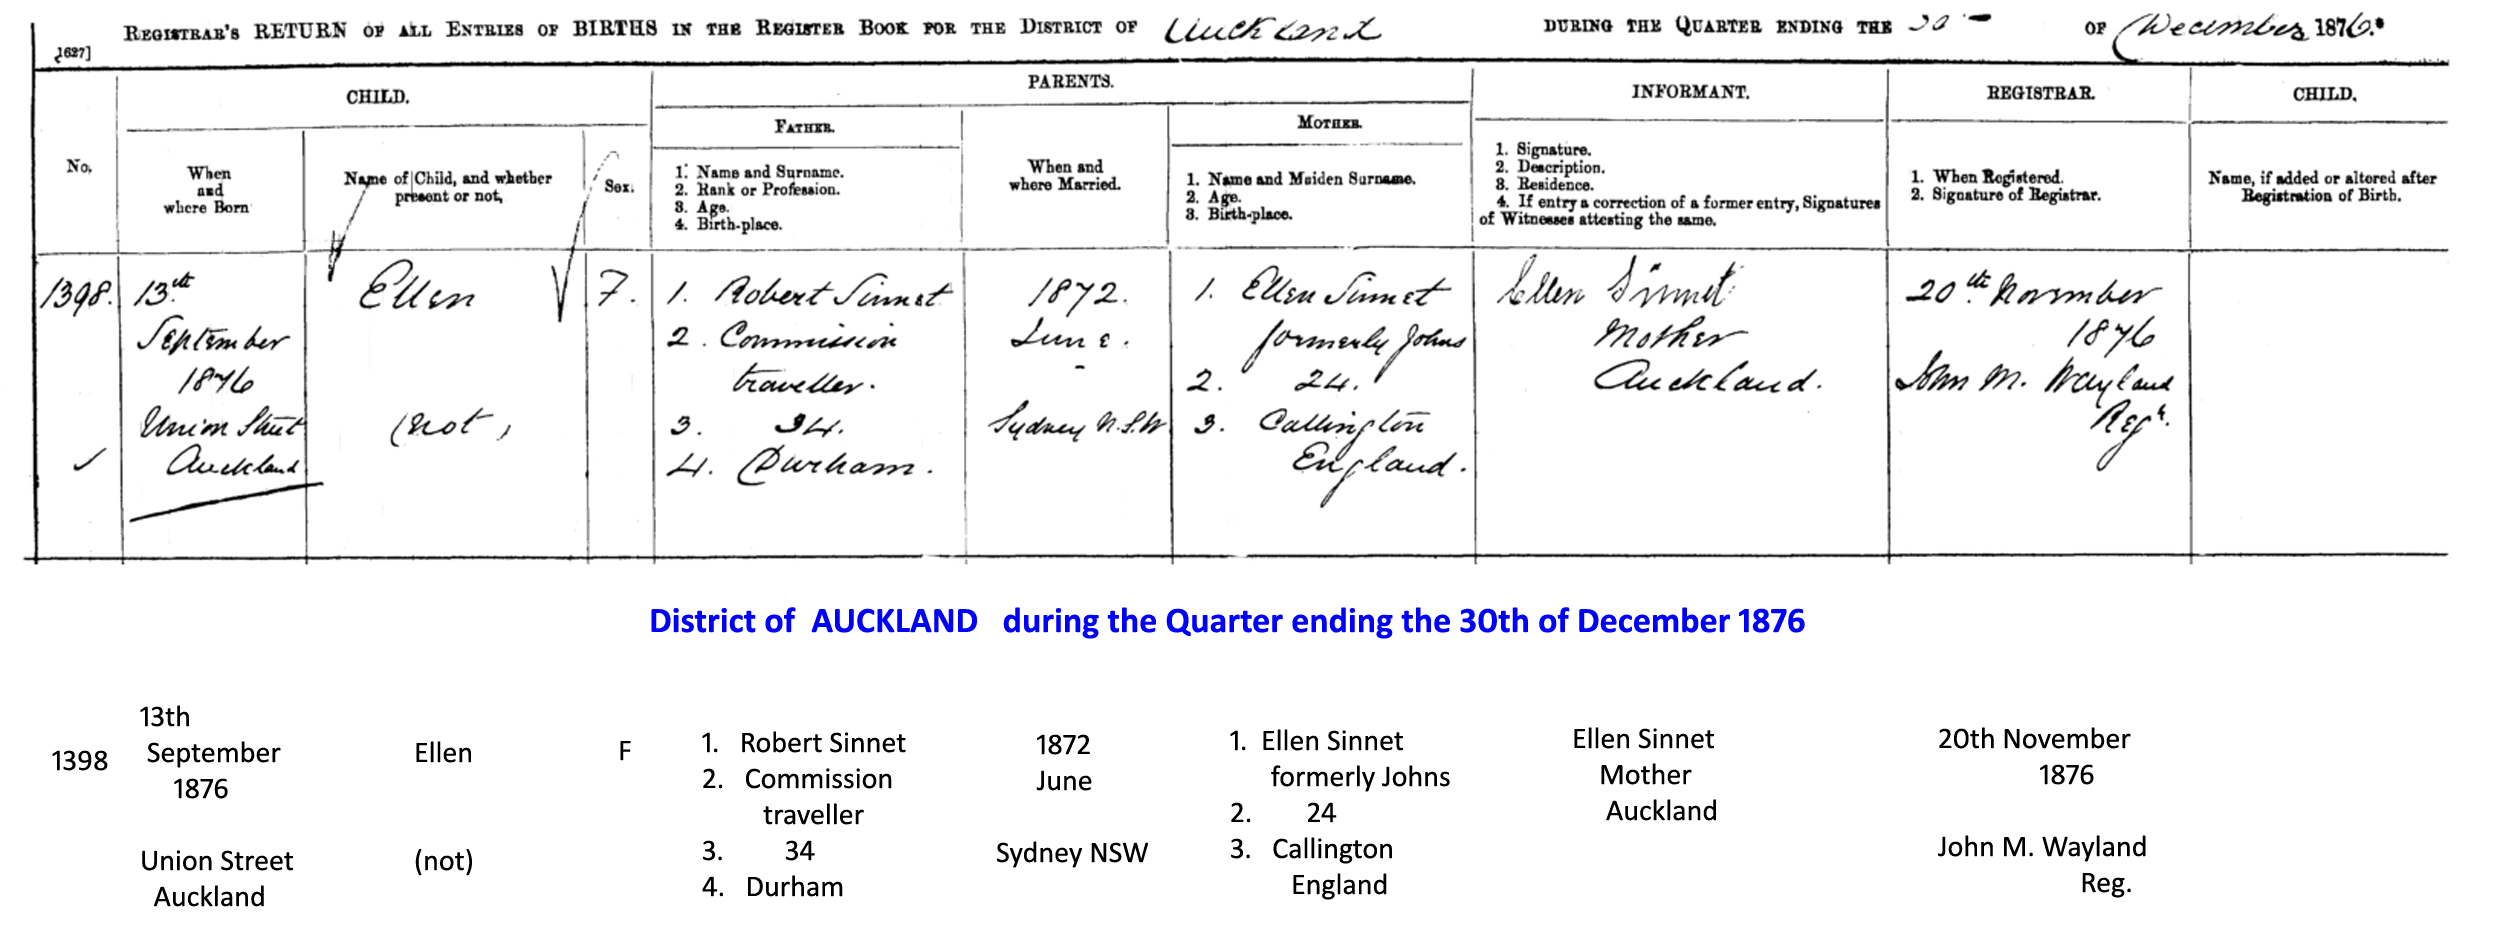 REGISTRAR'S RETURN OF ALL ENTRIES OF BIRTHS IN THE REGISTER BOOK FOR THE DISTRICT OF Auckland DURING THE QUARTER ENDING THE 30th OF December 1876.
1627]
CHILD.
PARENTS.
INFORMANT.
REGISTRAR.
CHILD.
No.
When
and
where Born
Name of Child, and whether
present or not,
Sex.
FATHER.
1. Name and Surname.
2. Rank or Profession.
3. Age.
4. Birth-place.
When and
where Married.
MOTHER.
1. Name and Maiden Surname.
2. Age.
3. Birth-place.
1. Signature.
2. Description.
3. Residence.
4. If entry a correction of a former entry, Signatures
of Witnesses attesting the same.
1. When Registered.
2. Signature of Registrar.
Name, if added or altered after
Registration of Birth.
1398.
13th
September
1876
Union Street
Auckland
Ellen
(not)
F.
1. Robert Sinnet
2. Commission
traveller.
3. 34.
4. Durham.
1872.
June.
-
Sydney N.S.W
1. Ellen Sinnet
formerly Johns
2. 24.
3. Callington
England.
Ellen Sinnet
Mother
Auckland.
20th November
1876
John M. Wayland
Regr.
District of AUCKLAND during the Quarter ending the 30th of December 1876
1398
13th
September
1876
Union Street
Auckland
Ellen
(not)
F
1. Robert Sinnet
2. Commission
traveller
3. 34
4. Durham
1872
June
Sydney NSW
1. Ellen Sinnet
formerly Johns
2. 24
3. Callington
England
Ellen Sinnet
Mother
Auckland
20th November
1876
John M. Wayland
Reg.